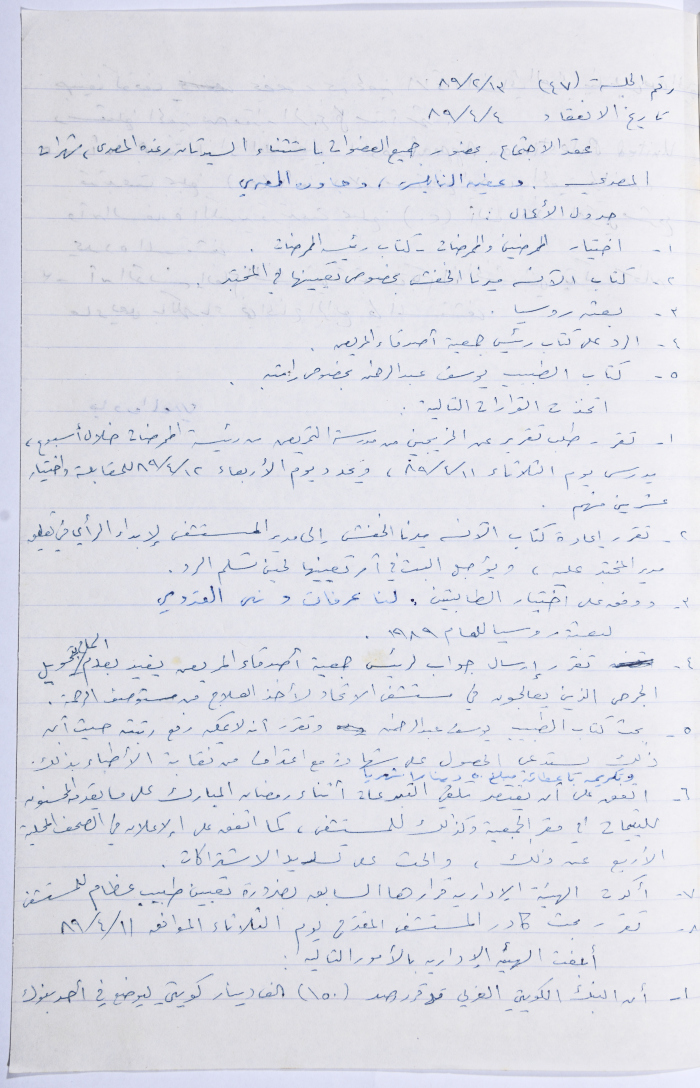 رقم الجلسة (٤٧) ٨٩/٢/١٣
تاريخ الانعقاد ٨٩/٤/٤
عقد الاجتماع بحضور جميع العضوات باستثناء السيدتان رغده المصري، شهرات
المصري وعطيه النابلسي، وحاوره المصري
جدول الأعمال :
١- اختيار الممرضين والممرضات - كتاب رئيسة الممرضات .
٢- كتاب الآنسه ميدنا الخفش بخصوص تعيينها في المختبر .
٣- بعثه روسيا .
٤- الرد على كتاب رئيس جمعية أصدقاء المريض .
٥- كتاب الطبيب يوسف عبدالرحمن بخصوص راتبه .
اتخذت القرارات التالية :
١- تقرر طلب تقرير عن الخريجين من مدرسة التمريض من رئيسة الممرضات خلال أسبوع،
يدرس يوم الثلاثاء ٨٩/٤/١١ ، ويحدد يوم الأربعاء ٨٩/٤/١٢ للمقابلة واختيار
عشرين منهم .
٢- تقرر إعادة كتاب الآنسه ميدنا الخفش إلى مدير المستشفى لإبداء الرأي في
مدير المختبر عليه ، ويؤجل البت في أمر تعيينها لحين تسلم الرد .
٣- ووفق على اختيار الطالبتين لنا عرفات و نهى
لبعثة روسيا للعام ١٩٨٩ .
٤- تقرر إرسال جواب لرئيس جمعية أصدقاء المريض يفيد بعدم تحويل
الجرحى الذين يعالجون في مستشفى الاتحاد لأخذ العلاج من مستوصف الرحمة .
٥- بحث كتاب الطبيب يوسف عبدالرحمن وتقرر أنه لا يمكن رفع رتبته حيث أن
ذلك يستدعي الحصول على شهادة مع اعتراف من نقابة الأطباء بذلك .
وتكريمه بإعطائه مبلغ ٥٠ دينارا شهريا
٦- اتفق على أن يقتصر تلقي التبرعات أثناء رمضان المبارك على ما يقدمه المحسنون
لليتيمات في مقر الجمعية وكذلك للمستشفى ، كما اتفق على الإعلان في الصحف المحلية
الأربع عن ذلك ، والحث على تسديد الاشتراكات .
٧- أكدت الهيئة الإدارية قرارها السابق بضرورة تعيين طبيب عظام للمستشفى
٨- تقرر بحث كادر المستشفى المقترح يوم الثلاثاء الموافق ٨٩/٤/١١
أعلمت الهيئة الإدارية بالأمور التالية :
١- أن البنك الكويتي العربي قد قرر رصد (١٥٠) الف دينار كويتي ليوضع في أحد بنوك